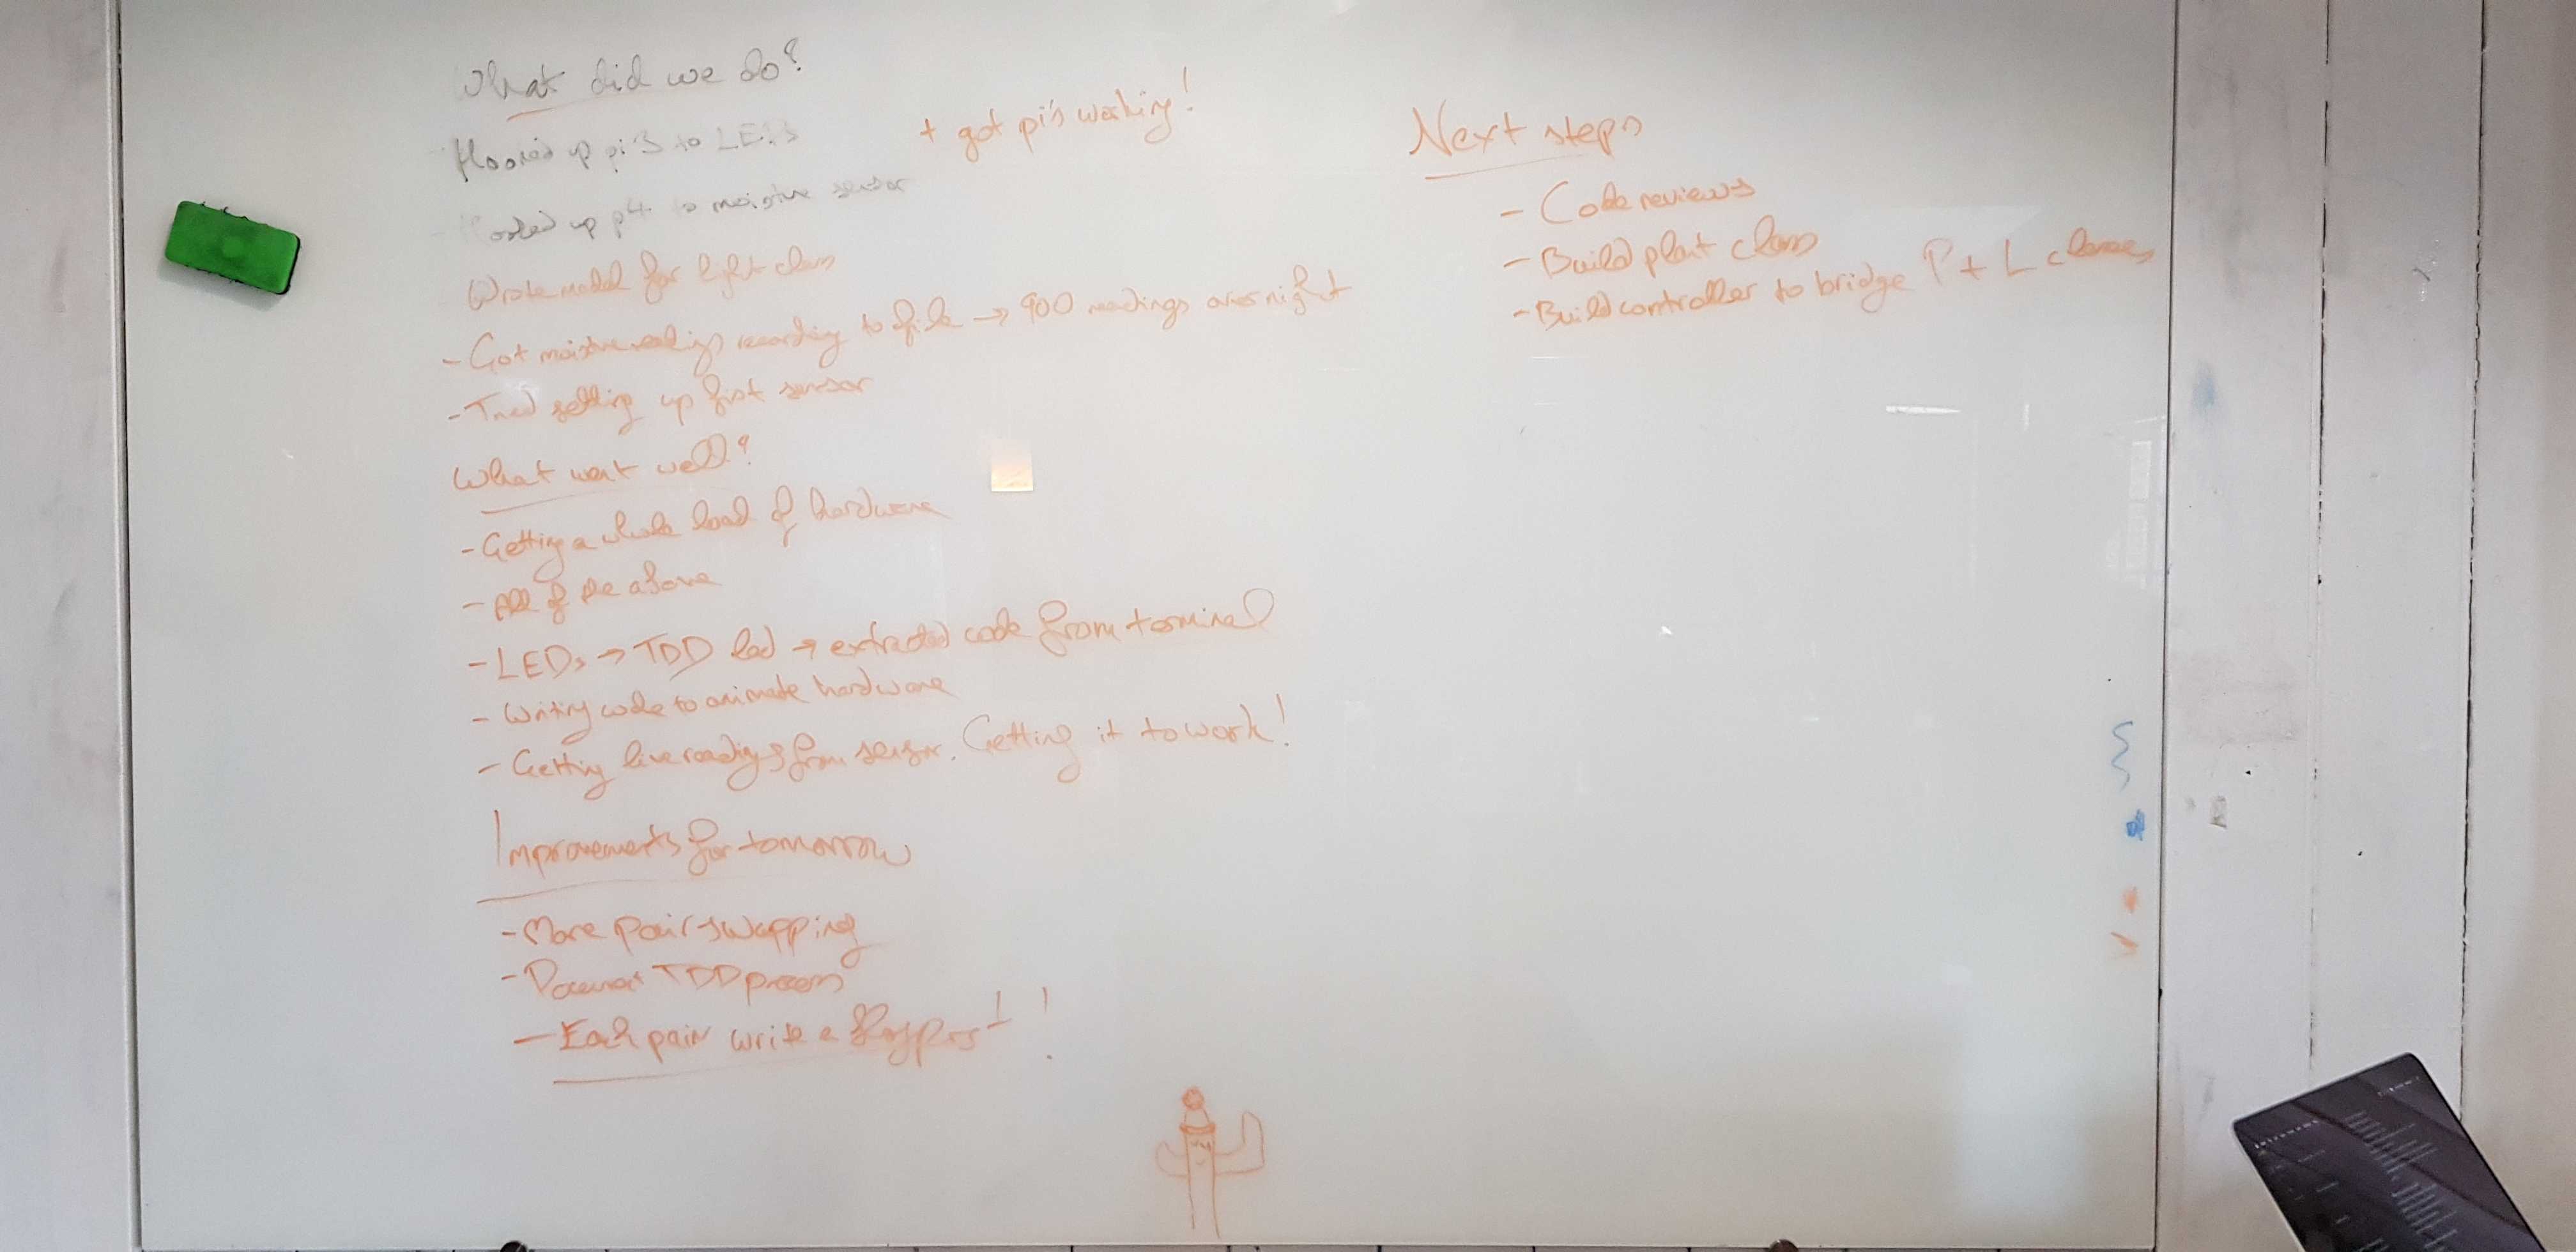 What did we do?
Hooked up pi 3 to LEDs
+ got pi's working!
- Hooked up p4 to moisture sensor
Wrote model for light class
- Got moisture readings recording to file → 900 readings overnight
- Tried setting up first sensor
What went well?
- Getting a whole load of hardware
- All of the above
- LEDs → TDD led → extracted code from terminal
- Writing code to animate hardware
- Getting live readings from sensor. Getting it to work!
Improvements for tomorrow
- More pair swapping
- Document TDD process
- Each pair write a !
Next steps
- Code reviews
- Build plant class
- Build controller to bridge P + L classes